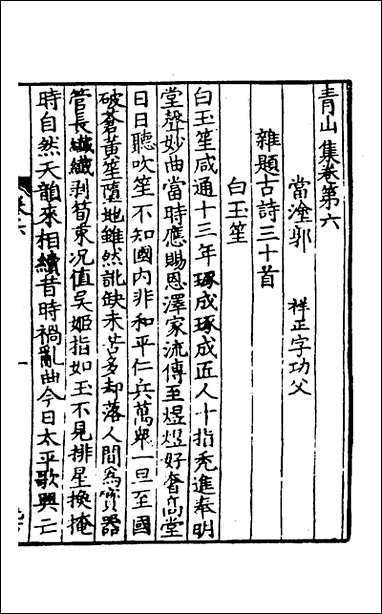 青山集卷第六
當塗郭　祥正字功父
雜題古詩三十首
白玉笙
白玉笙咸通十三年琢成琢成匠人十指禿進奉明
堂聲妙曲當時應賜恩澤家流傳至煜煜好奢高堂
日日聽吹笙不知國內非和平仁兵萬衆一旦至國
破蒼黃笙墮地雖然訛缺未苦多却落人間爲寶器
管長纖纖剥筍束况值吴姬指如玉不見排星換掩
時自然天韻來相續昔時禍亂曲今日太平歌興亡